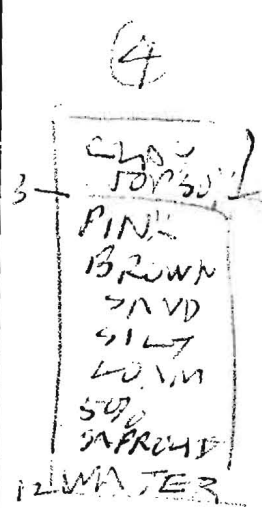 4
CLAY
TOPSOIL
3
PINK
BROWN
SAND
SILT
LOAM
SAPROLITE
12 WATER